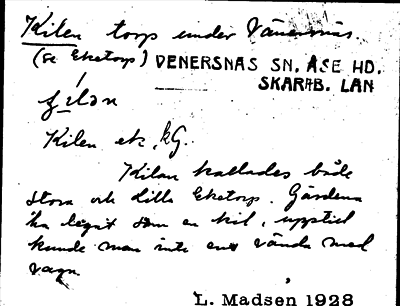 Kilen torp under Vänersnäs.
(se Eketorp) VENERSNÄS SN. ÅSE HD.
SKARAB. LÄN
Kilen ek. kG.
Kilan kallades både
Stora och Lilla Eketorp. Gårdena
ha legat som en kil, uppstod
kunde man inte ens vända med
vagn
L. Madsen 1928